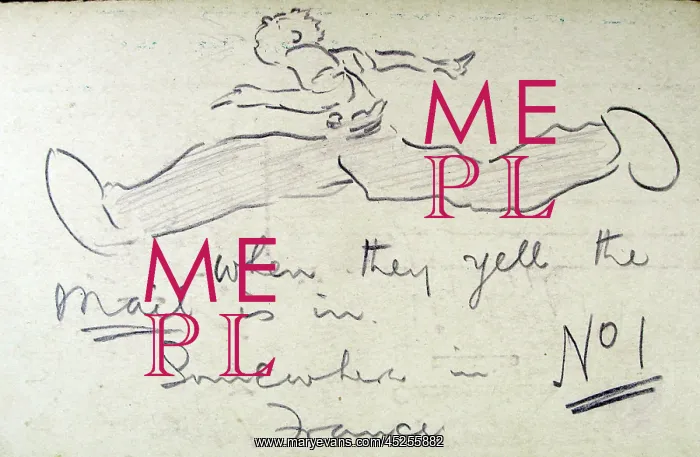 ME
PL
when they yell the
Mail is in.
Somewhere in
France
No 1
ME
PL
www.maryevans.com/45255882